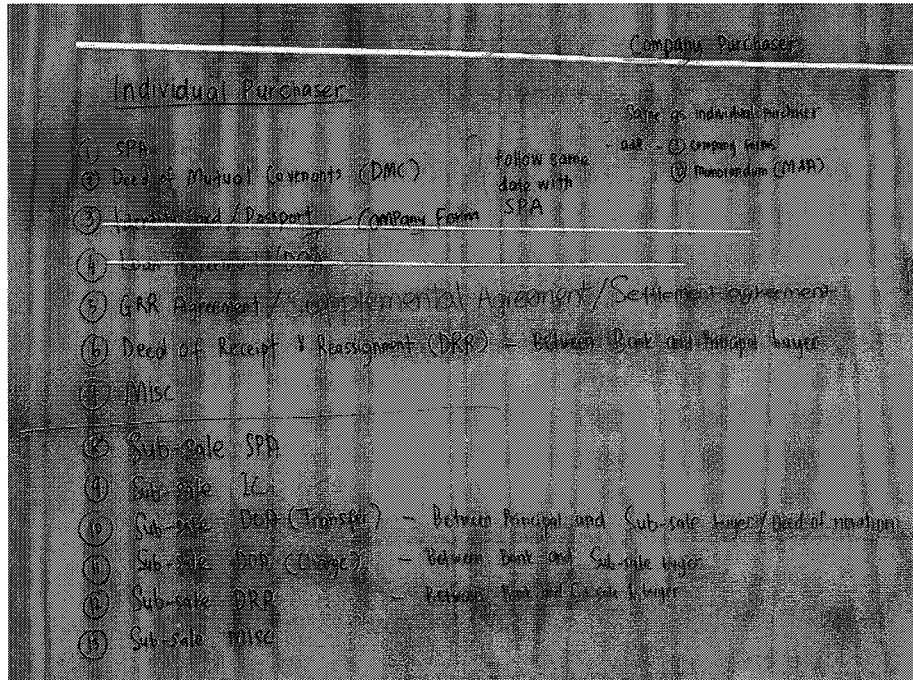 Company Purchaser
Individual Purchaser
- Same as individual purchaser
- add - ② Company forms
③ Memorandum (M&A)
① SPA
② Deed of Mutual Covenants (DMC)
Follow same
date with
SPA
③ Card / Passport - Company Form
④ Loan
⑤ GRR Agreement / Supplemental Agreement / Settlement agreement
⑥ Deed of Receipt & Reassignment (DRR) - Between Bank and Principal buyer
⑦ Misc
⑧ Sub-sale SPA
⑨ Sub-sale IC
⑩ Sub-sale DOA (Transfer) - Between Principal and Sub-sale buyer / Deed of novation
⑪ Sub-sale DOA (Charge) - Between Bank and Sub-sale buyer
⑫ Sub-sale DRR - Between Bank and buyer
⑬ Sub-sale misc